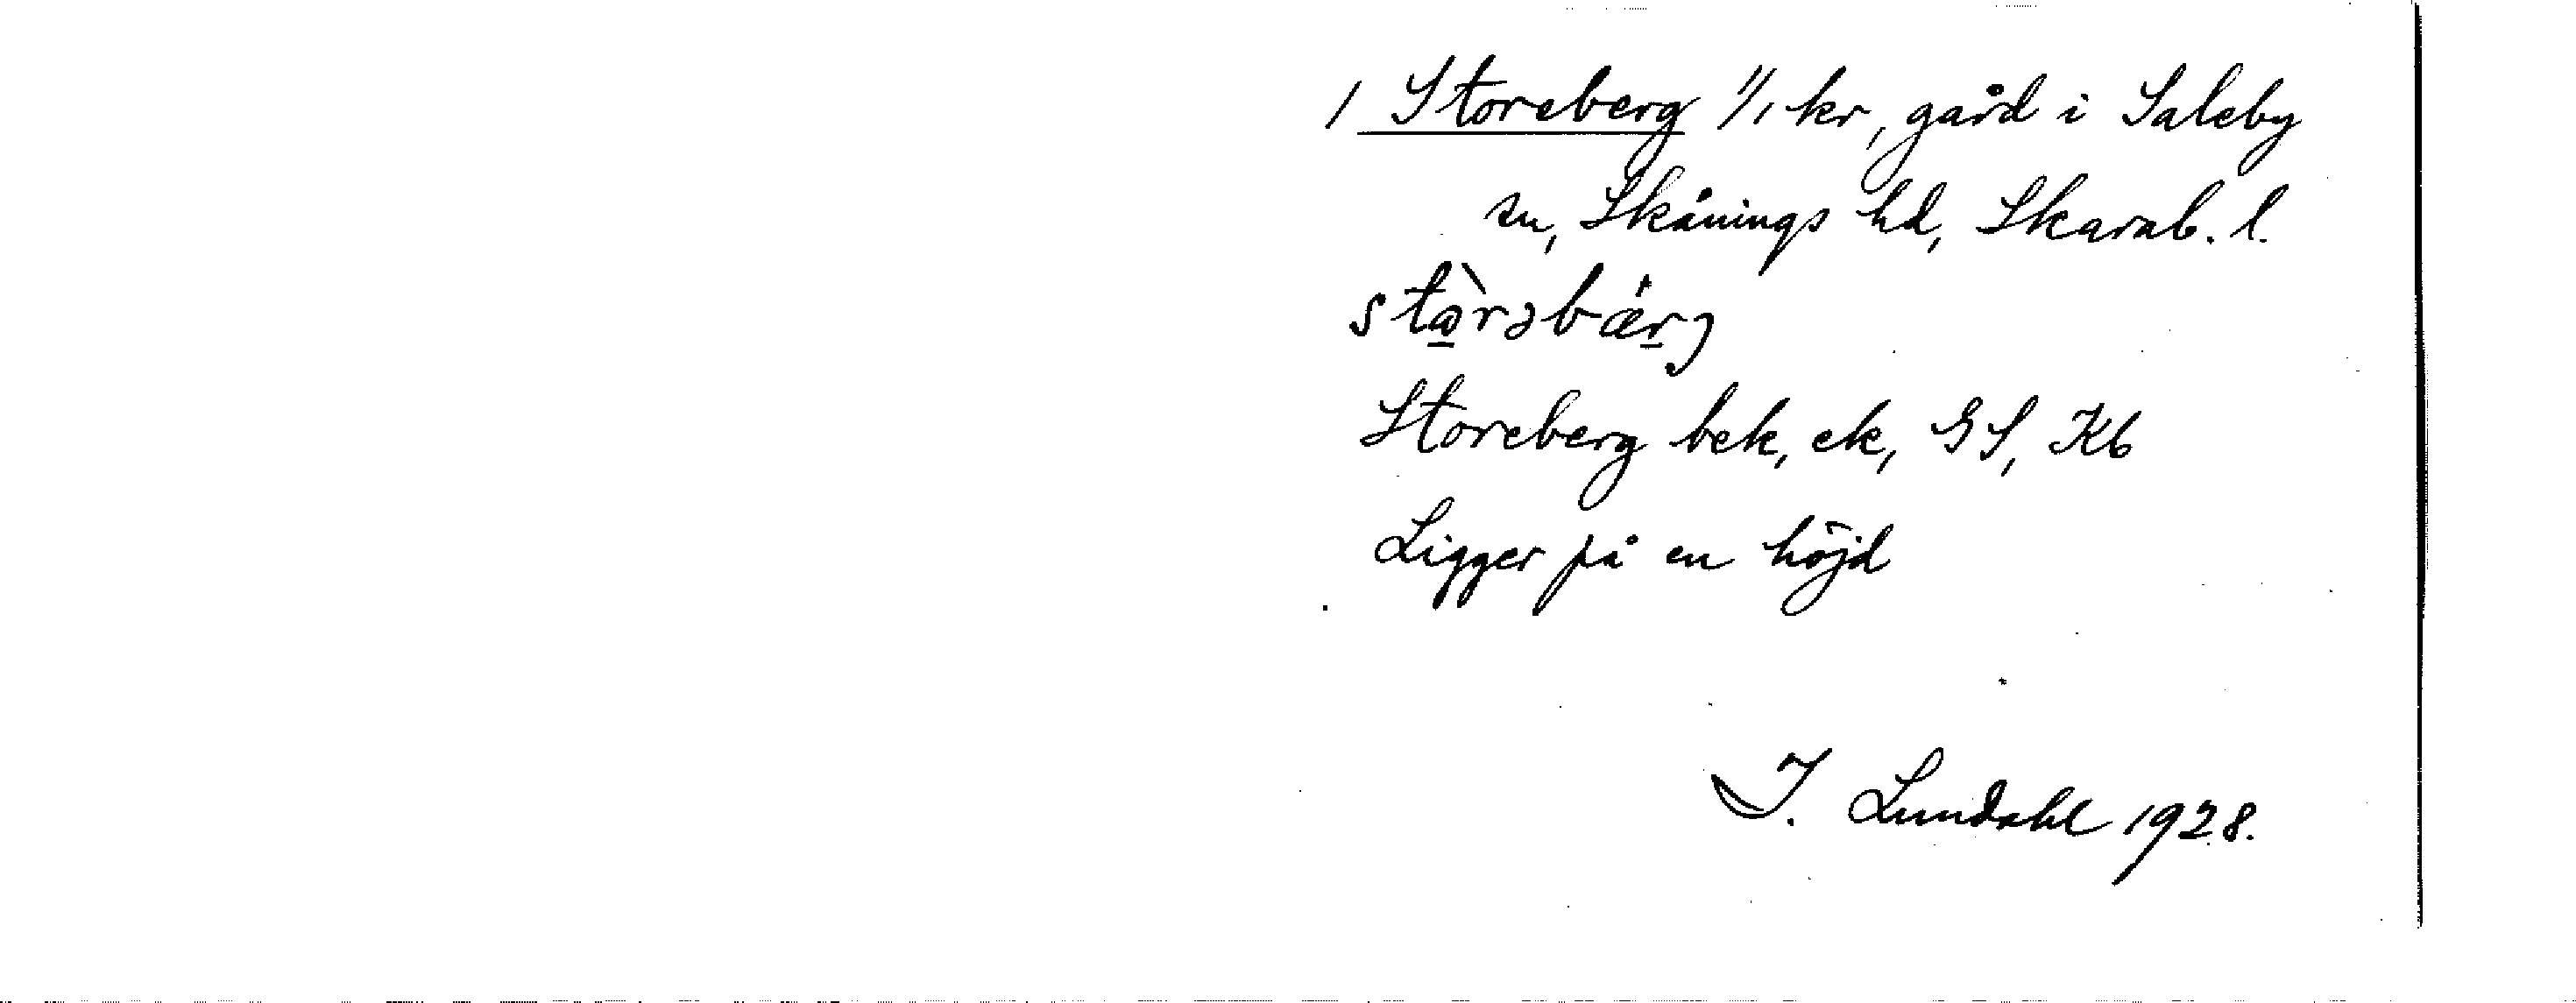 / Storeberg 1/1 kr, gård i Saleby
sn, Skånings hd, Skarab. l.
stɷ̀rəbǽrj
Storeberg bek, ek, GS, Kb
Ligger på en höjd
I. Lundahl 1928.